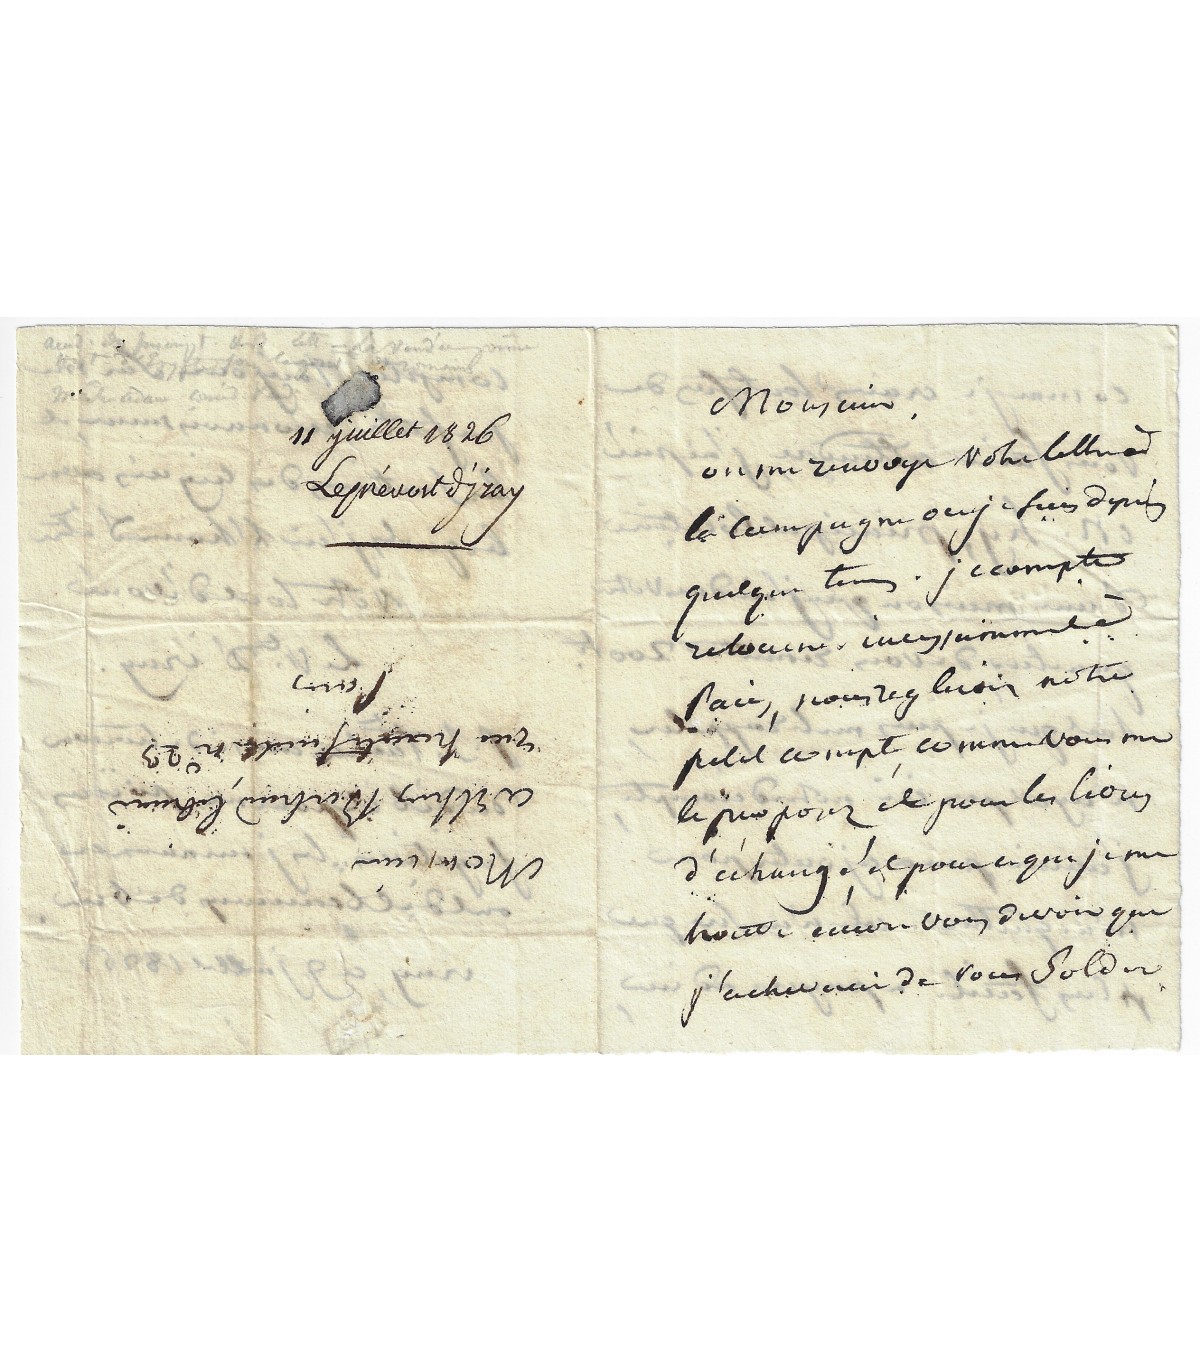 11 juillet 1826
Leprévost d'Iray
Monsieur
Arthus Bertrand, libraire
rue hautefeuille n° 23
Paris
Monsieur,
on me renvoye votre lettre à
la campagne ou je suis depuis
quelque tems. je compte
retourner incessamment à
Paris, nous reglerons notre
petit compte, comme vous me
le proposez et pour les livres
d'échange, et pour ce que je me
trouve encore vous devoir que
j'acheverai de vous solder